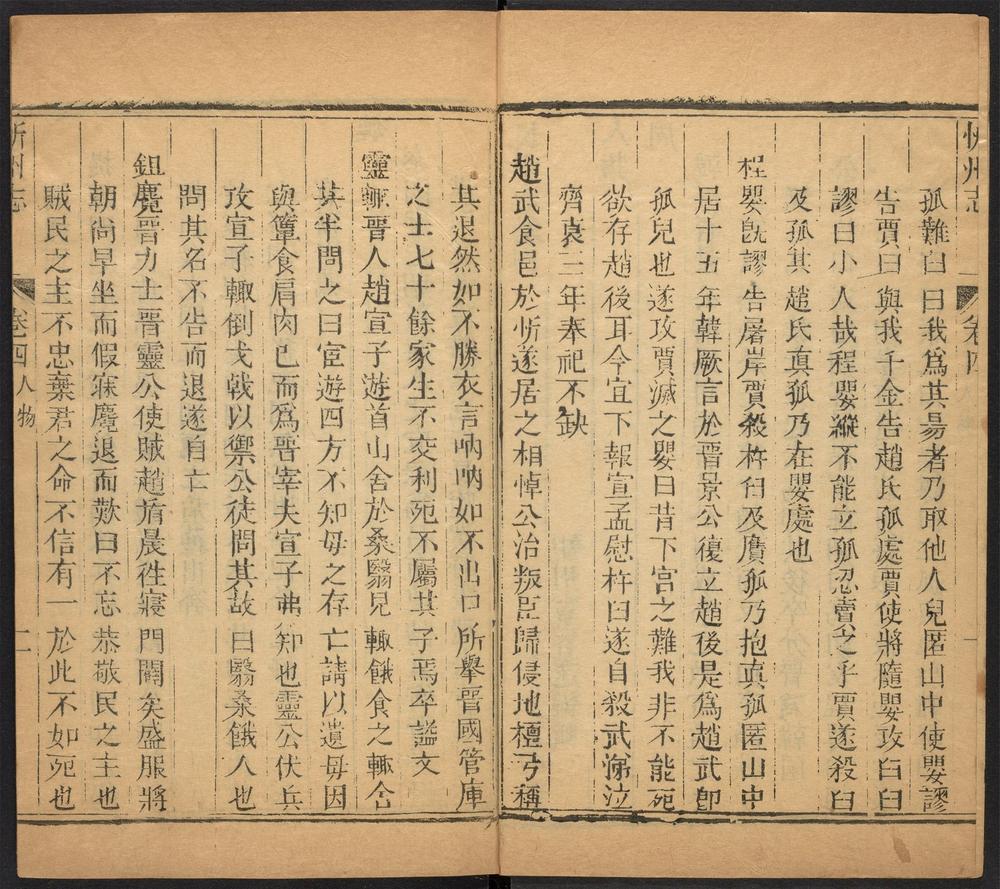 忻州志
卷四
孤難臼曰我為其易者乃取他人兒匿山中使嬰謬
告賈曰與我千金告趙氏孤處賈使將隨嬰攻臼臼
謬曰小人哉程嬰縱不能立孤忍賣之乎賈遂殺臼
及孤其趙氏真孤乃在嬰處也
程嬰既謬告屠岸賈殺杵臼及贋孤乃抱真孤匿山中
居十五年韓厥言於晉景公復立趙後是為趙武卽
孤兒也遂攻賈滅之嬰曰昔下宮之難我非不能死
欲存趙後耳今宜下報宣孟慰杵臼遂自殺武涕泣
齊衰三年奉祀不缺
趙武食邑於忻遂居之相悼公治叛臣歸侵地檀弓稱
其退然如不勝衣言吶吶如不出口所舉晉國管庫
之士七十餘家生不交利死不屬其子焉卒謚文
靈輙晉人趙宣子遊首山舍於桑翳見輙餓食之輙舍
其半問之曰宦遊四方不知母之存亡請以遺母因
與簞食肩肉已而為晉宰夫宣子弗知也靈公伏兵
攻宣子輙倒戈戟以禦公徒問其故曰翳桑餓人也
問其名不告而退遂自亡
鉏麑晉力士晉靈公使賊趙盾晨徃寢門闢矣盛服將
朝尚早坐而假寐麑退而歎曰不忘恭敬民之主也
賊民之主不忠棄君之命不信有一於此不如死也
忻州志
卷四人物
二